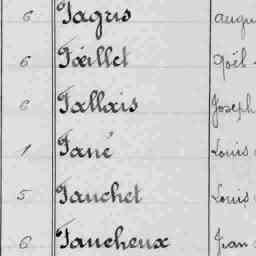 6 Fagris augu
6 Faillet Noël
6 Fallais Joseph
1 Fané Louis
5 Fauchet Louis
6 Faucheux Jean